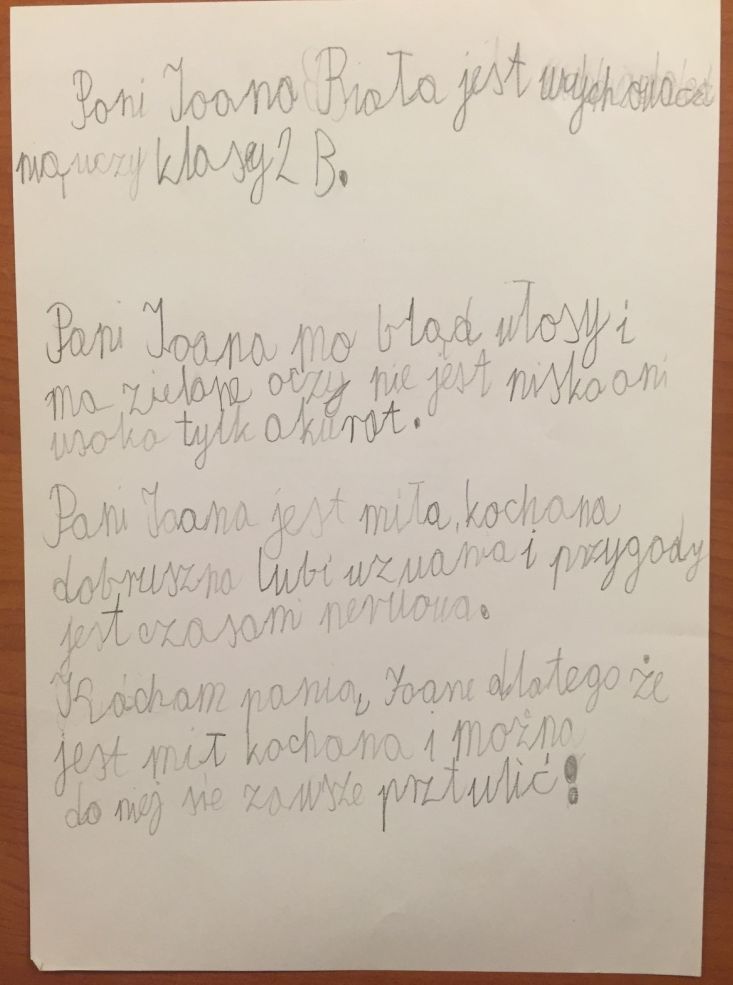 Pani Joana Biała jest wychowaczi
nią, uczy klasy 2 B.
Pani Joana ma bląd włosy i
ma zielone oczy nie jest niska ani
wsoka tylk akurat.
Pani Joana jest miła, kochana
dobruszna lubi wzwania i przygody
jest czasam nerwowa.
Kocham panią Joane dlatego że
jest mił kochana i można
do niej sie zawsze prztulić!